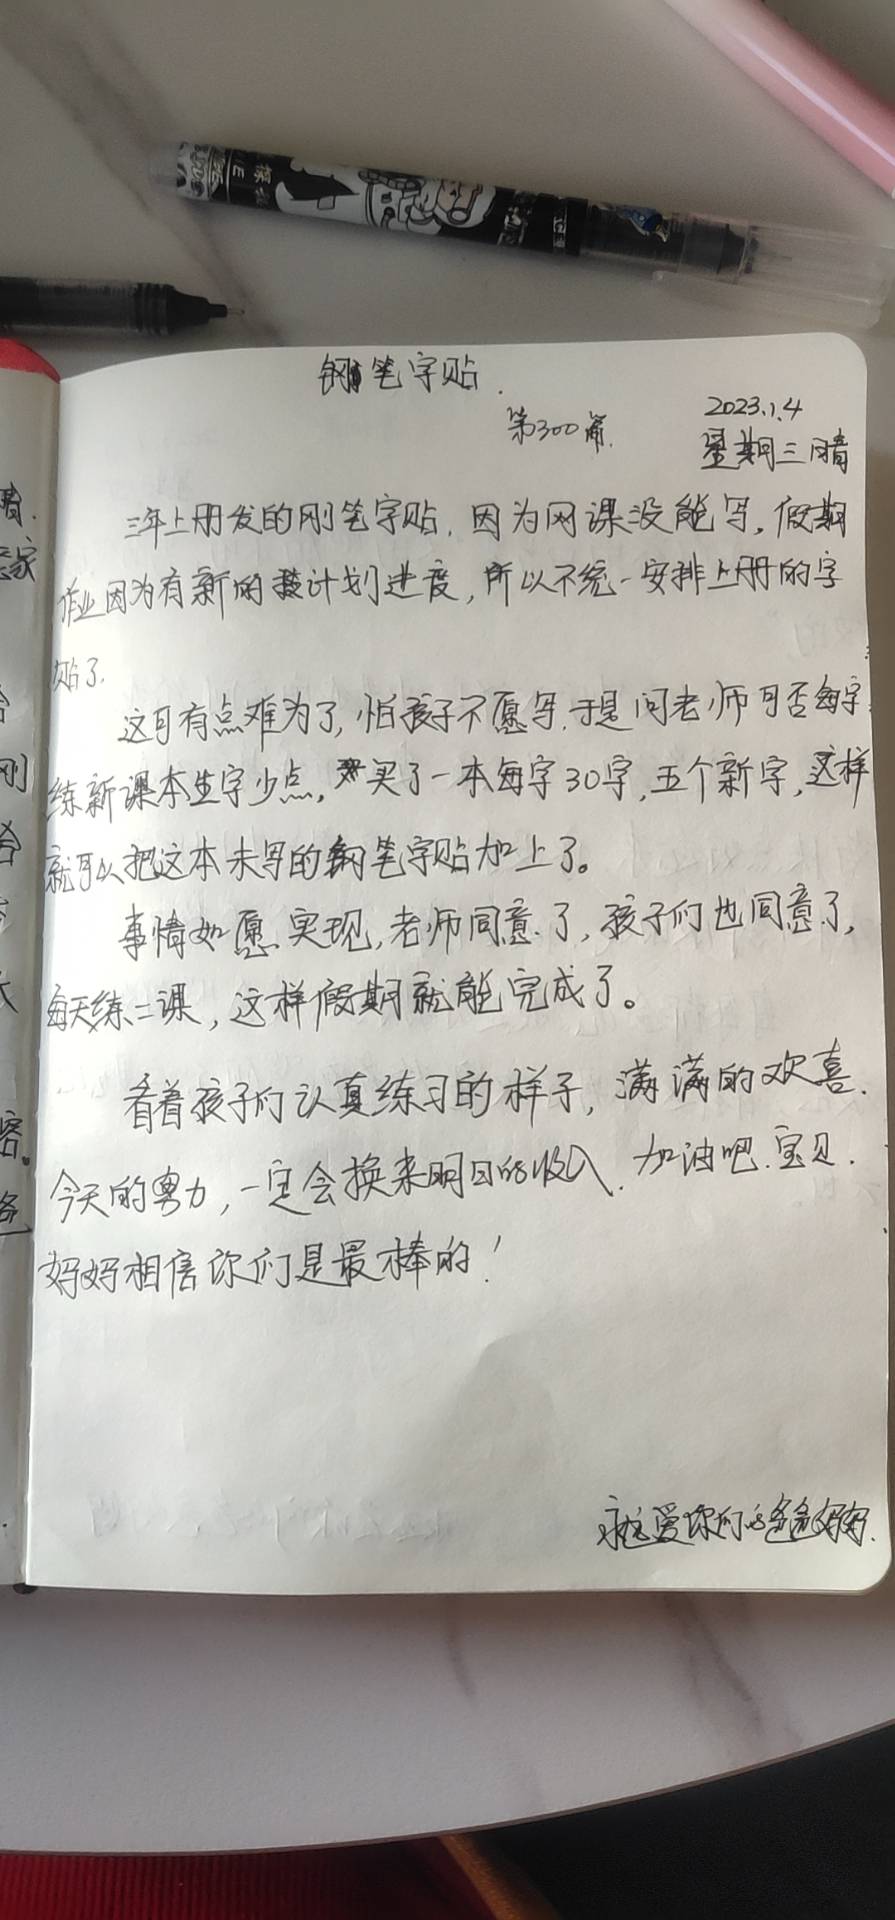 钢笔字贴.
第300篇.
2023.1.4
星期三 晴
三年上册发的刚笔字贴,因为网课没能写,假期
作业因为有新的计划进度,所以不统一安排上册的字
贴了.
这可有点难为了,怕孩子不愿写.于是问老师可否每字
练新课本生字少点,买了一本每字30字,五个新字,这样
就可以把这本未写的钢笔字贴加上了。
事情如愿实现,老师同意了,孩子们也同意了,
每天练二课,这样假期就能完成了。
看着孩子们认真练习的样子,满满的欢喜.
今天的努力,一定会换来明日的收入.加油吧.宝贝.
妈妈相信你们是最棒的!
永远爱你们的爸爸妈妈.